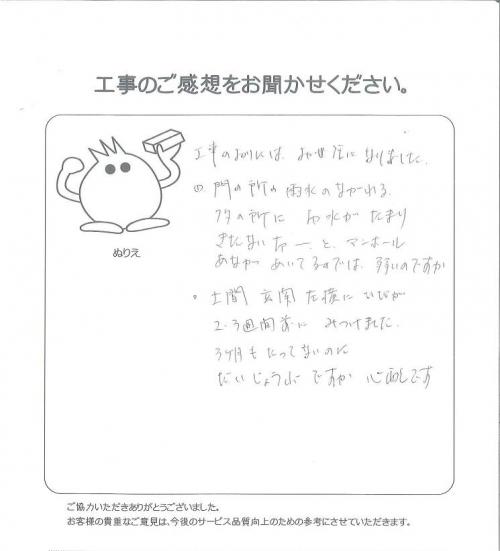 工事のご感想をお聞かせください。
工事の折には、お世話になりました。
門の所の雨水のながれる
フタの所に 雨水がたまり
きたないなー と、マンホール
あながあいてるのでは ないのですか
。土間 玄関左横にひびが
2・3週間前に みつけました。
3ヶ月もたってないのに
だいじょうぶですか 心配です
ぬりえ
ご協力いただきありがとうございました。
お客様の貴重なご意見は、今後のサービス品質向上のための参考にさせていただきます。